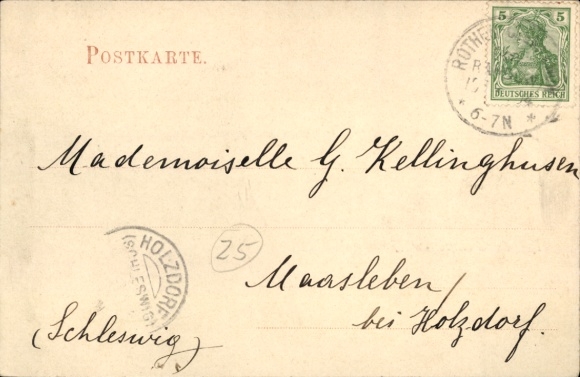 POSTKARTE.
5 5
DEUTSCHES REICH
* 6-7N *
Mademoiselle G. Kellinghusen
HOLZDORF
(SCHLESWIG)
25
Maasleben
bei Holzdorf.
(Schleswig)